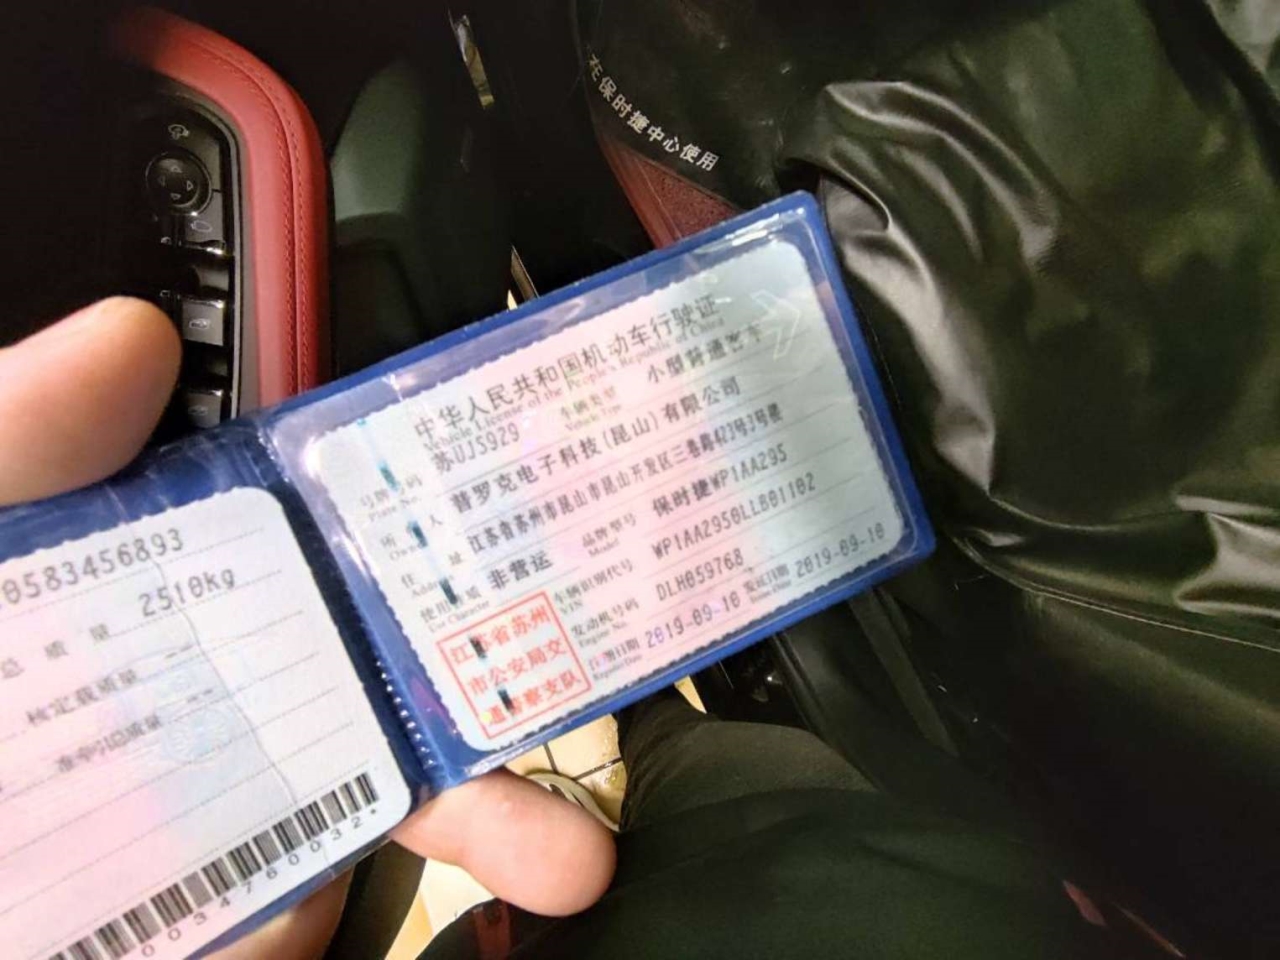 在保时捷中心使用
中华人民共和国机动车行驶证
Vehicle License of the People's Republic of China
号牌号码 苏UJ5929 车辆类型 小型普通客车
Plate No. Vehicle Type
所 人 普罗克电子科技(昆山)有限公司
Owner
住 址 江苏省苏州市昆山市昆山开发区三巷路423号3号楼
Address
使用性质 非营运 品牌型号 保时捷WP1AA295
Use Character Model
车辆识别代号 WP1AA2950LLB01102
VIN
发动机号码 DLH059768
Engine No.
注册日期 2019-09-10 发证日期 2019-09-10
Register Date Issue Date
江苏省苏州
市公安局交
通警察支队
0583456893
总质量 2510Kg
核定载质量 --
准牵引总质量 --
0034760032*